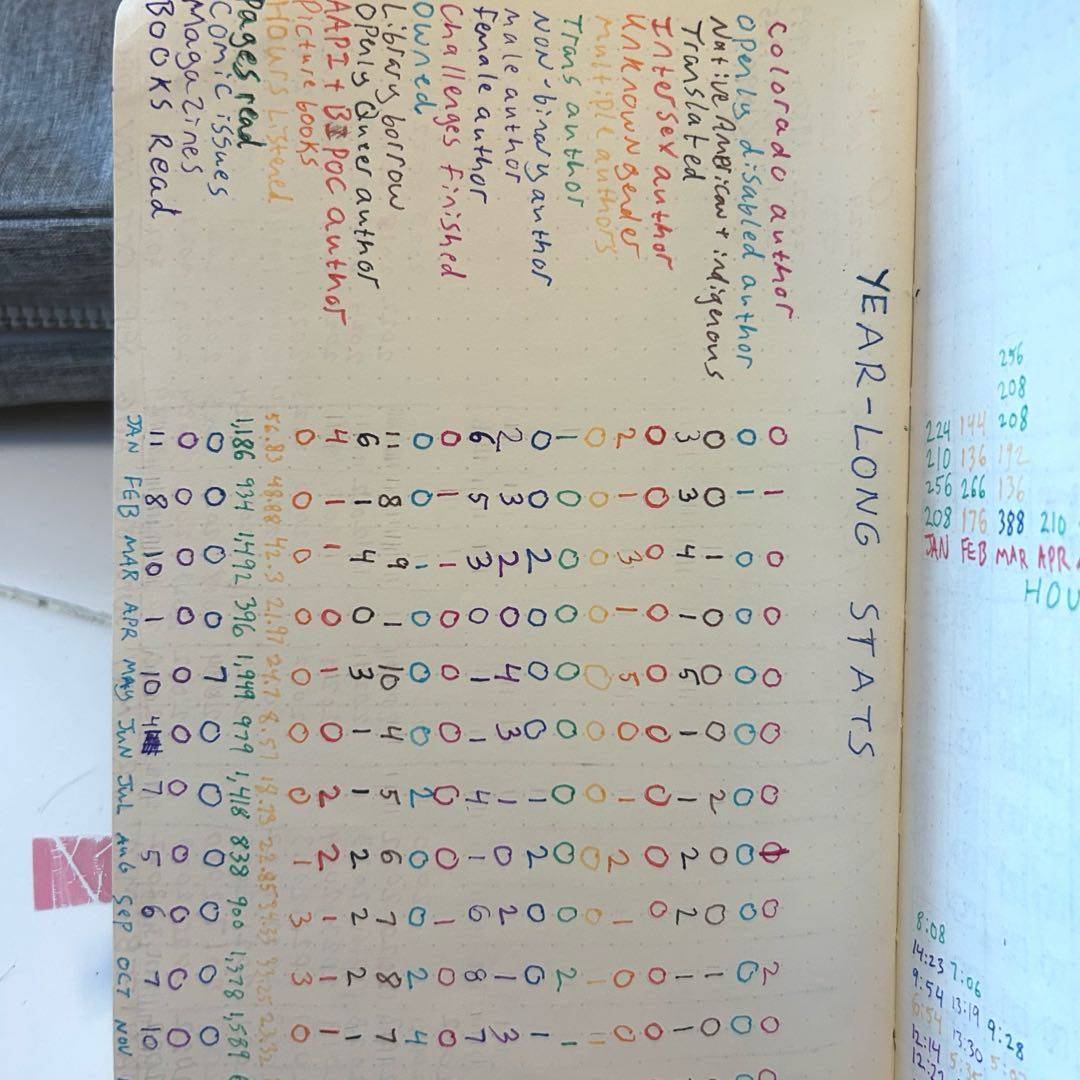 YEAR-LONG STATS
Colorado author 0 1 0 0 0 0 0 0 0 2 0
Openly disabled author 0 1 0 0 0 0 0 0 0 0 0
Native American + indigenous 0 0 1 0 0 0 2 0 0 1 0
Translated 3 3 4 1 5 1 1 2 2 1 1
Intersex author 0 0 0 0 0 0 0 0 0 0 0
Unknown gender 2 1 3 1 5 0 1 2 1 0 0
Multiple authors 0 0 0 0 0 0 0 0 0 1 1
Trans author 1 0 0 0 0 0 0 0 0 2 1
Non-binary author 0 0 2 0 0 0 1 2 0 0 1
male author 2 3 2 0 4 3 1 0 2 1 3
female author 6 5 3 0 1 1 4 1 6 8 7
Challenges finished 0 1 1 0 0 0 0 0 1 0 0
Owned 0 0 1 0 0 0 2 0 0 2 4
Library borrow 11 8 9 1 10 4 5 6 7 8 7
Openly Queer author 6 1 4 0 3 1 1 2 2 2 1
AAPI + BIPOC author 4 1 1 0 1 0 2 2 1 1 1
Picture books 0 0 0 0 0 0 0 1 3 3 0
Hours Listened 56.83 48.88 42.3 21.97 24.7 8.57 18.73 22.85 33.25 23.32
Pages read 1,186 934 1,492 396 1,949 979 1,418 838 900 1,378 1,589
Comic issues 0 0 0 0 7 0 0 0 0 0 0
Magazines 0 0 0 0 0 0 0 0 0 0 0
BOOKS READ 11 8 10 1 10 4 7 5 6 7 10
JAN FEB MAR APR MAY JUN JUL AUG SEP OCT NOV
256
208
224 144 208
210 136 192
256 266 136
208 176 388 210
JAN FEB MAR APR
HOU
8:08
14:23 7:06
9:54 13:19 9:28
6:54 13:30
12:14